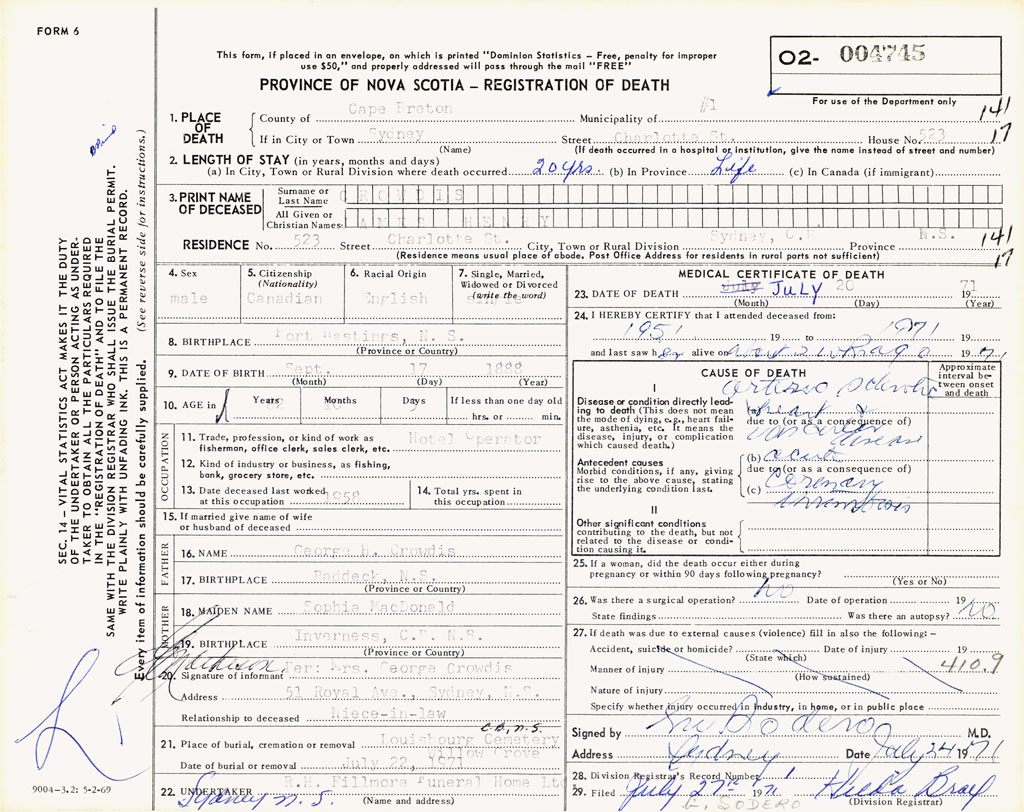 FORM 6
This form, if placed in an envelope, on which is printed "Dominion Statistics – Free, penalty for improper
use $50," and properly addressed will pass through the mail "FREE"
PROVINCE OF NOVA SCOTIA – REGISTRATION OF DEATH
O2- 004745
For use of the Department only
1. PLACE OF DEATH
County of Cape Breton Municipality of #1
141
If in City or Town Sydney Street Charlotte St. House No. 523
17
(Name) (If death occurred in a hospital or institution, give the name instead of street and number)
2. LENGTH OF STAY (in years, months and days)
(a) In City, Town or Rural Division where death occurred 20 yrs. (b) In Province Life (c) In Canada (if immigrant)
3. PRINT NAME OF DECEASED
Surname or Last Name CROWDIS
All Given or Christian Names: HENRY
RESIDENCE No. 523 Street Charlotte St. City, Town or Rural Division Sydney, C.B Province N.S.
141
(Residence means usual place of abode. Post Office Address for residents in rural parts not sufficient)
17
4. Sex
male
5. Citizenship
(Nationality)
Canadian
6. Racial Origin
English
7. Single, Married,
Widowed or Divorced
(write the word)
Single
8. BIRTHPLACE Port Hastings, N. S.
(Province or Country)
9. DATE OF BIRTH Sept. 17 1888
(Month) (Day) (Year)
10. AGE in Years 82 Months 10 Days 3 If less than one day old
hrs. or min.
OCCUPATION
11. Trade, profession, or kind of work as Hotel Operator
fisherman, office clerk, sales clerk, etc.
12. Kind of industry or business, as fishing,
bank, grocery store, etc.
13. Date deceased last worked
at this occupation 1958
14. Total yrs. spent in
this occupation
15. If married give name of wife
or husband of deceased
FATHER
16. NAME George H. Crowdis
17. BIRTHPLACE Baddeck, N.S.
(Province or Country)
MOTHER
18. MAIDEN NAME Sophia MacDonald
19. BIRTHPLACE Inverness, C.B. N.S.
(Province or Country)
20. Signature of informant Per: Mrs. George Crowdis
Address 51 Royal Ave., Sydney, N.S.
Relationship to deceased Niece-in-law
C.B., N.S.
21. Place of burial, cremation or removal Louisbourg Cemetery
Willow Grove
Date of burial or removal July 22, 1971
22. UNDERTAKER R.H. Fillmore Funeral Home Ltd
Sydney N. S. (Name and address)
MEDICAL CERTIFICATE OF DEATH
23. DATE OF DEATH July JULY 20 1971
(Month) (Day) (Year)
24. I HEREBY CERTIFY that I attended deceased from:
1951 19 to 1971 19
and last saw h alive on about 2 wks ago 1971
CAUSE OF DEATH
Approximate interval between onset and death
I
Disease or condition directly leading to death (This does not mean the mode of dying, e.g., heart failure, asthenia, etc. It means the disease, injury, or complication which caused death.)
Arterio sclerotic
(a) heart &
due to (or as a consequence of)
vascular disease
(b) acute
Antecedent causes
Morbid conditions, if any, giving rise to the above cause, stating the underlying condition last.
due to (or as a consequence of)
(c) Coronary
thrombosis
II
Other significant conditions
contributing to the death, but not related to the disease or condition causing it.
25. If a woman, did the death occur either during
pregnancy or within 90 days following pregnancy?
(Yes or No)
26. Was there a surgical operation? no Date of operation 19
State findings Was there an autopsy? NO
27. If death was due to external causes (violence) fill in also the following: –
Accident, suicide or homicide? Date of injury 19
(State which)
Manner of injury 410.9
(How sustained)
Nature of injury
Specify whether injury occurred in industry, in home, or in public place
Signed by Sodero M.D.
Address Sydney Date July 24 1971
28. Division Registrar's Record Number 1
29. Filed July 27th 1971 Hilda
(Division Registrar)
G. SODERO
SEC. 14 – VITAL STATISTICS ACT MAKES IT THE DUTY
OF THE UNDERTAKER OR PERSON ACTING AS UNDER-
TAKER TO OBTAIN ALL THE PARTICULARS REQUIRED
IN THE "REGISTRATION OF DEATH" AND TO FILE THE
SAME WITH THE DIVISION REGISTRAR WHO SHALL ISSUE THE BURIAL PERMIT.
WRITE PLAINLY WITH UNFADING INK. THIS IS A PERMANENT RECORD.
Every item of information should be carefully supplied. (See reverse side for instructions.)
9004-3.2: 5-2-69